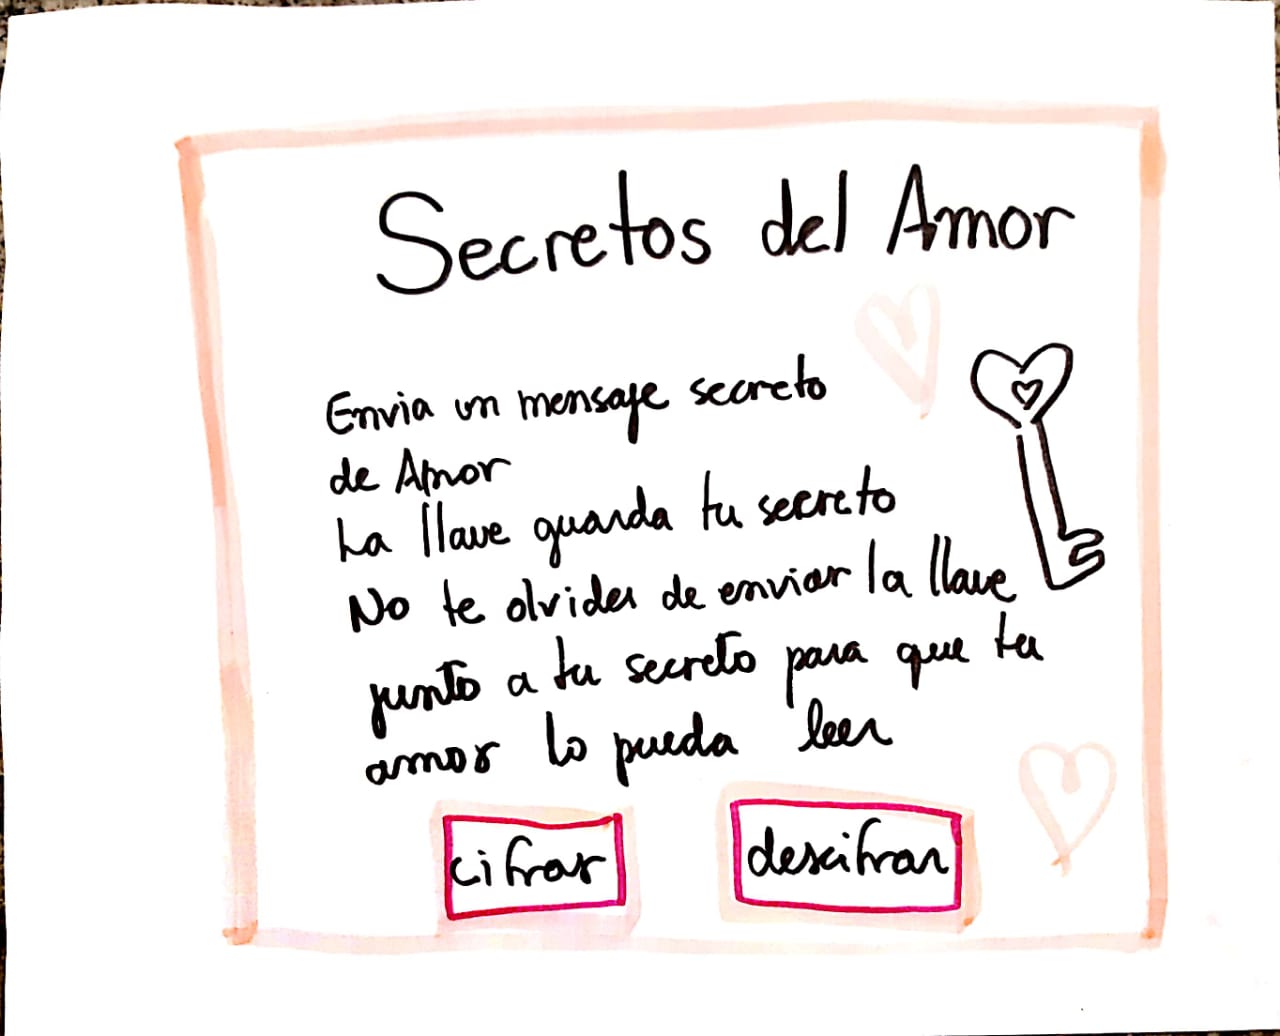 Secretos del Amor
Envia un mensaje secreto
de Amor
La llave guarda tu secreto
No te olvides de enviar la llave
junto a tu secreto para que tu
amor lo pueda leer
cifrar
descifrar